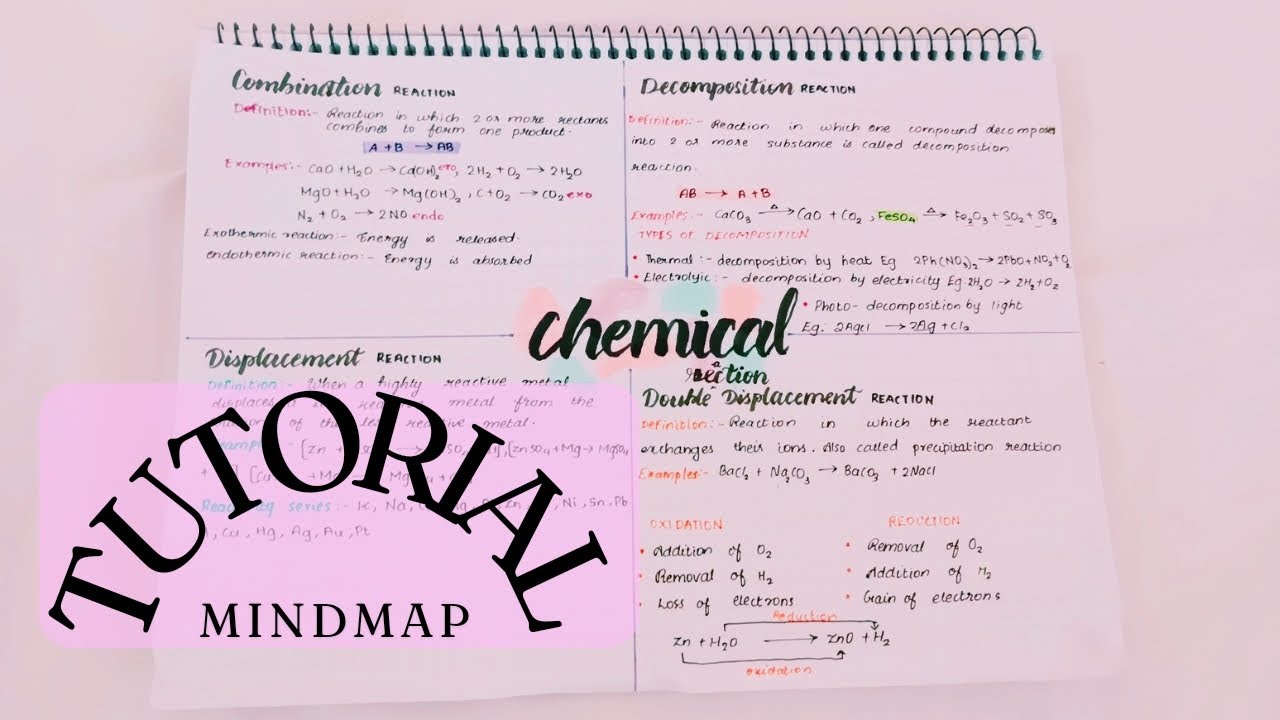 Combination REACTION
Definition:- Reaction in which 2 or more rectants
combines to form one product.
A + B → AB
Examples:- CaO + H₂O → Ca(OH)₂ exo, 2H₂ + O₂ → 2H₂O
MgO + H₂O → Mg(OH)₂, C + O₂ → CO₂ exo
N₂ + O₂ → 2NO endo
Exothermic reaction:- Energy is released.
endothermic reaction:- Energy is absorbed
Decomposition REACTION
Definition:- Reaction in which one compound decomposes
into 2 or more substance is called decomposition
reaction.
AB → A + B
Examples:- CaCO₃ △→ CaO + CO₂, FeSO₄ △→ Fe₂O₃ + SO₂ + SO₃
TYPES OF DECOMPOSITION
• Thermal:- decomposition by heat Eg 2Pb(NO₃)₂ → 2PbO + NO₂ + O₂
• Electrolyic:- decomposition by electricity Eg: 2H₂O → 2H₂ + O₂
• Photo- decomposition by light
Eg: 2AgCl → 2Ag + Cl₂
chemical
reaction
Displacement REACTION
Definition:- When a highly reactive metal
displaces metal from the
of the metal.
[Zn + [ZnSO₄ + Mg → MgSO₄
Series:- K, Na, Zn, Ni, Sn, Pb
, Cu, Hg, Ag, Au, Pt
Double Displacement REACTION
Definition:- Reaction in which the reactant
exchanges their ions. Also called precipitation reaction
Examples:- BaCl₂ + Na₂CO₃ → BaCO₃ + 2NaCl
OXIDATION
• Addition of O₂
• Removal of H₂
• Loss of electrons
REDUCTION
• Removal of O₂
• Addition of H₂
• Gain of electrons
Reduction
Zn + H₂O → ZnO + H₂
oxidation
TUTORIAL
MINDMAP